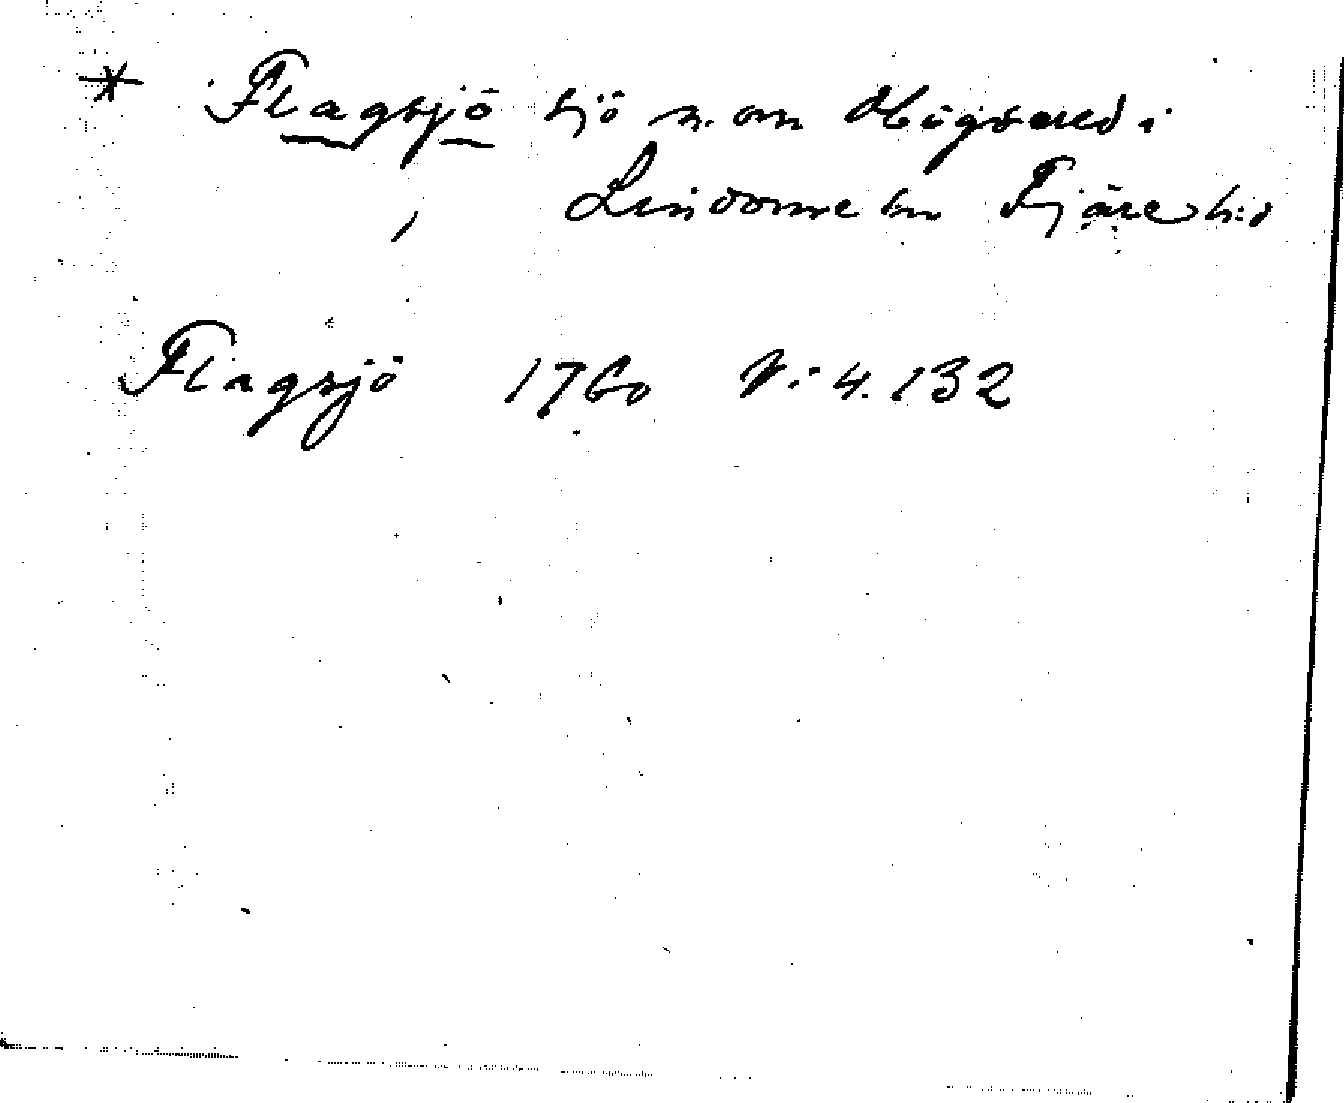 * Flagsjö sjö n. om Högsered i
Lindome sn Fjäre hd
Flagsjö 1760 V: 4. 132